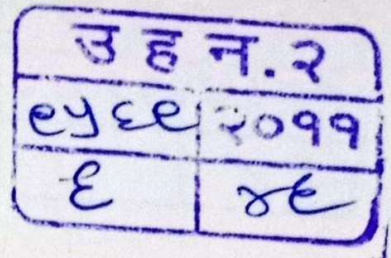 उ ह न. २
९५६९ २०११
६ ४६